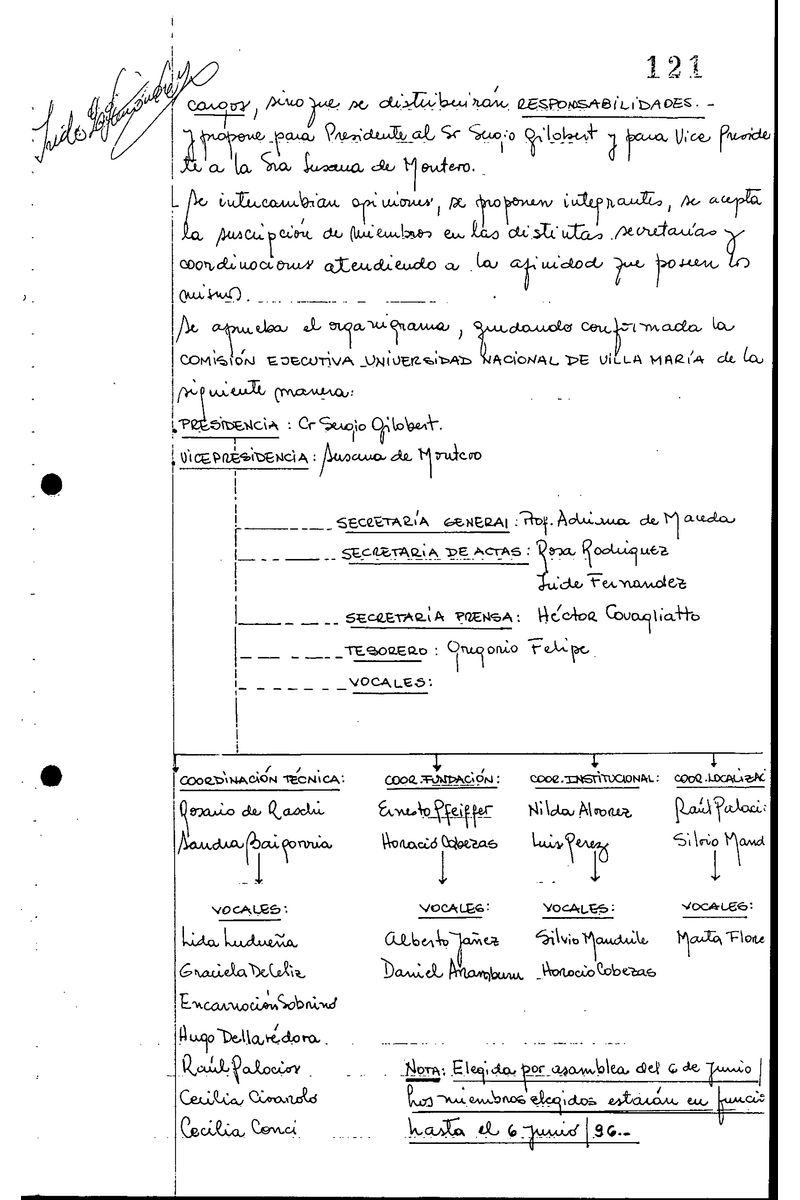 121
cargos, sino que se distribuirán RESPONSABILIDADES. -
y propone para Presidente al Sr Sergio Gilobert y para Vice Preside
te a la Sra Susana de Montero.
Se intercambian opiniones, se proponen integrantes, se acepta
la suscripción de miembros en las distintas secretarías y
coordinaciones atendiendo a la afinidad que poseen los
mismos.
Se aprueba el organigrama, quedando conformada la
COMISIÓN EJECUTIVA UNIVERSIDAD NACIONAL DE VILLA MARÍA de la
siguiente manera:
PRESIDENCIA: Cr Sergio Gilobert.
VICEPRESIDENCIA: Susana de Montero
SECRETARÍA GENERAL: Prof. Adriana de Maceda
SECRETARIA DE ACTAS: Rosa Rodriguez
Iride Fernandez
SECRETARÍA PRENSA: Héctor Cavagliatto
TESORERO: Gregorio Felipe
VOCALES:
COORDINACIÓN TÉCNICA: COOR. FUNDACIÓN: COOR. INSTITUCIONAL: COOR. LOCALIZAC
Rosario de Raschi Ernesto Pfeiffer Nilda Alvarez Raúl Palaci
Sandra Baigorria Horacio Cabezas Luis Perez Silvio Mand
VOCALES: VOCALES: VOCALES: VOCALES:
Lida Ludueña Alberto Yañez Silvio Mandrile Marta Flore
Graciela De Celiz Daniel Aramburu Horacio Cabezas
Encarnación Sobrino
Hugo Dellavédora.
Raúl Palacios NOTA: Elegida por asamblea del 6 de Junio/
Cecilia Civarolo Los miembros elegidos estarán en funcio
Cecilia Conci hasta el 6 Junio/96.-